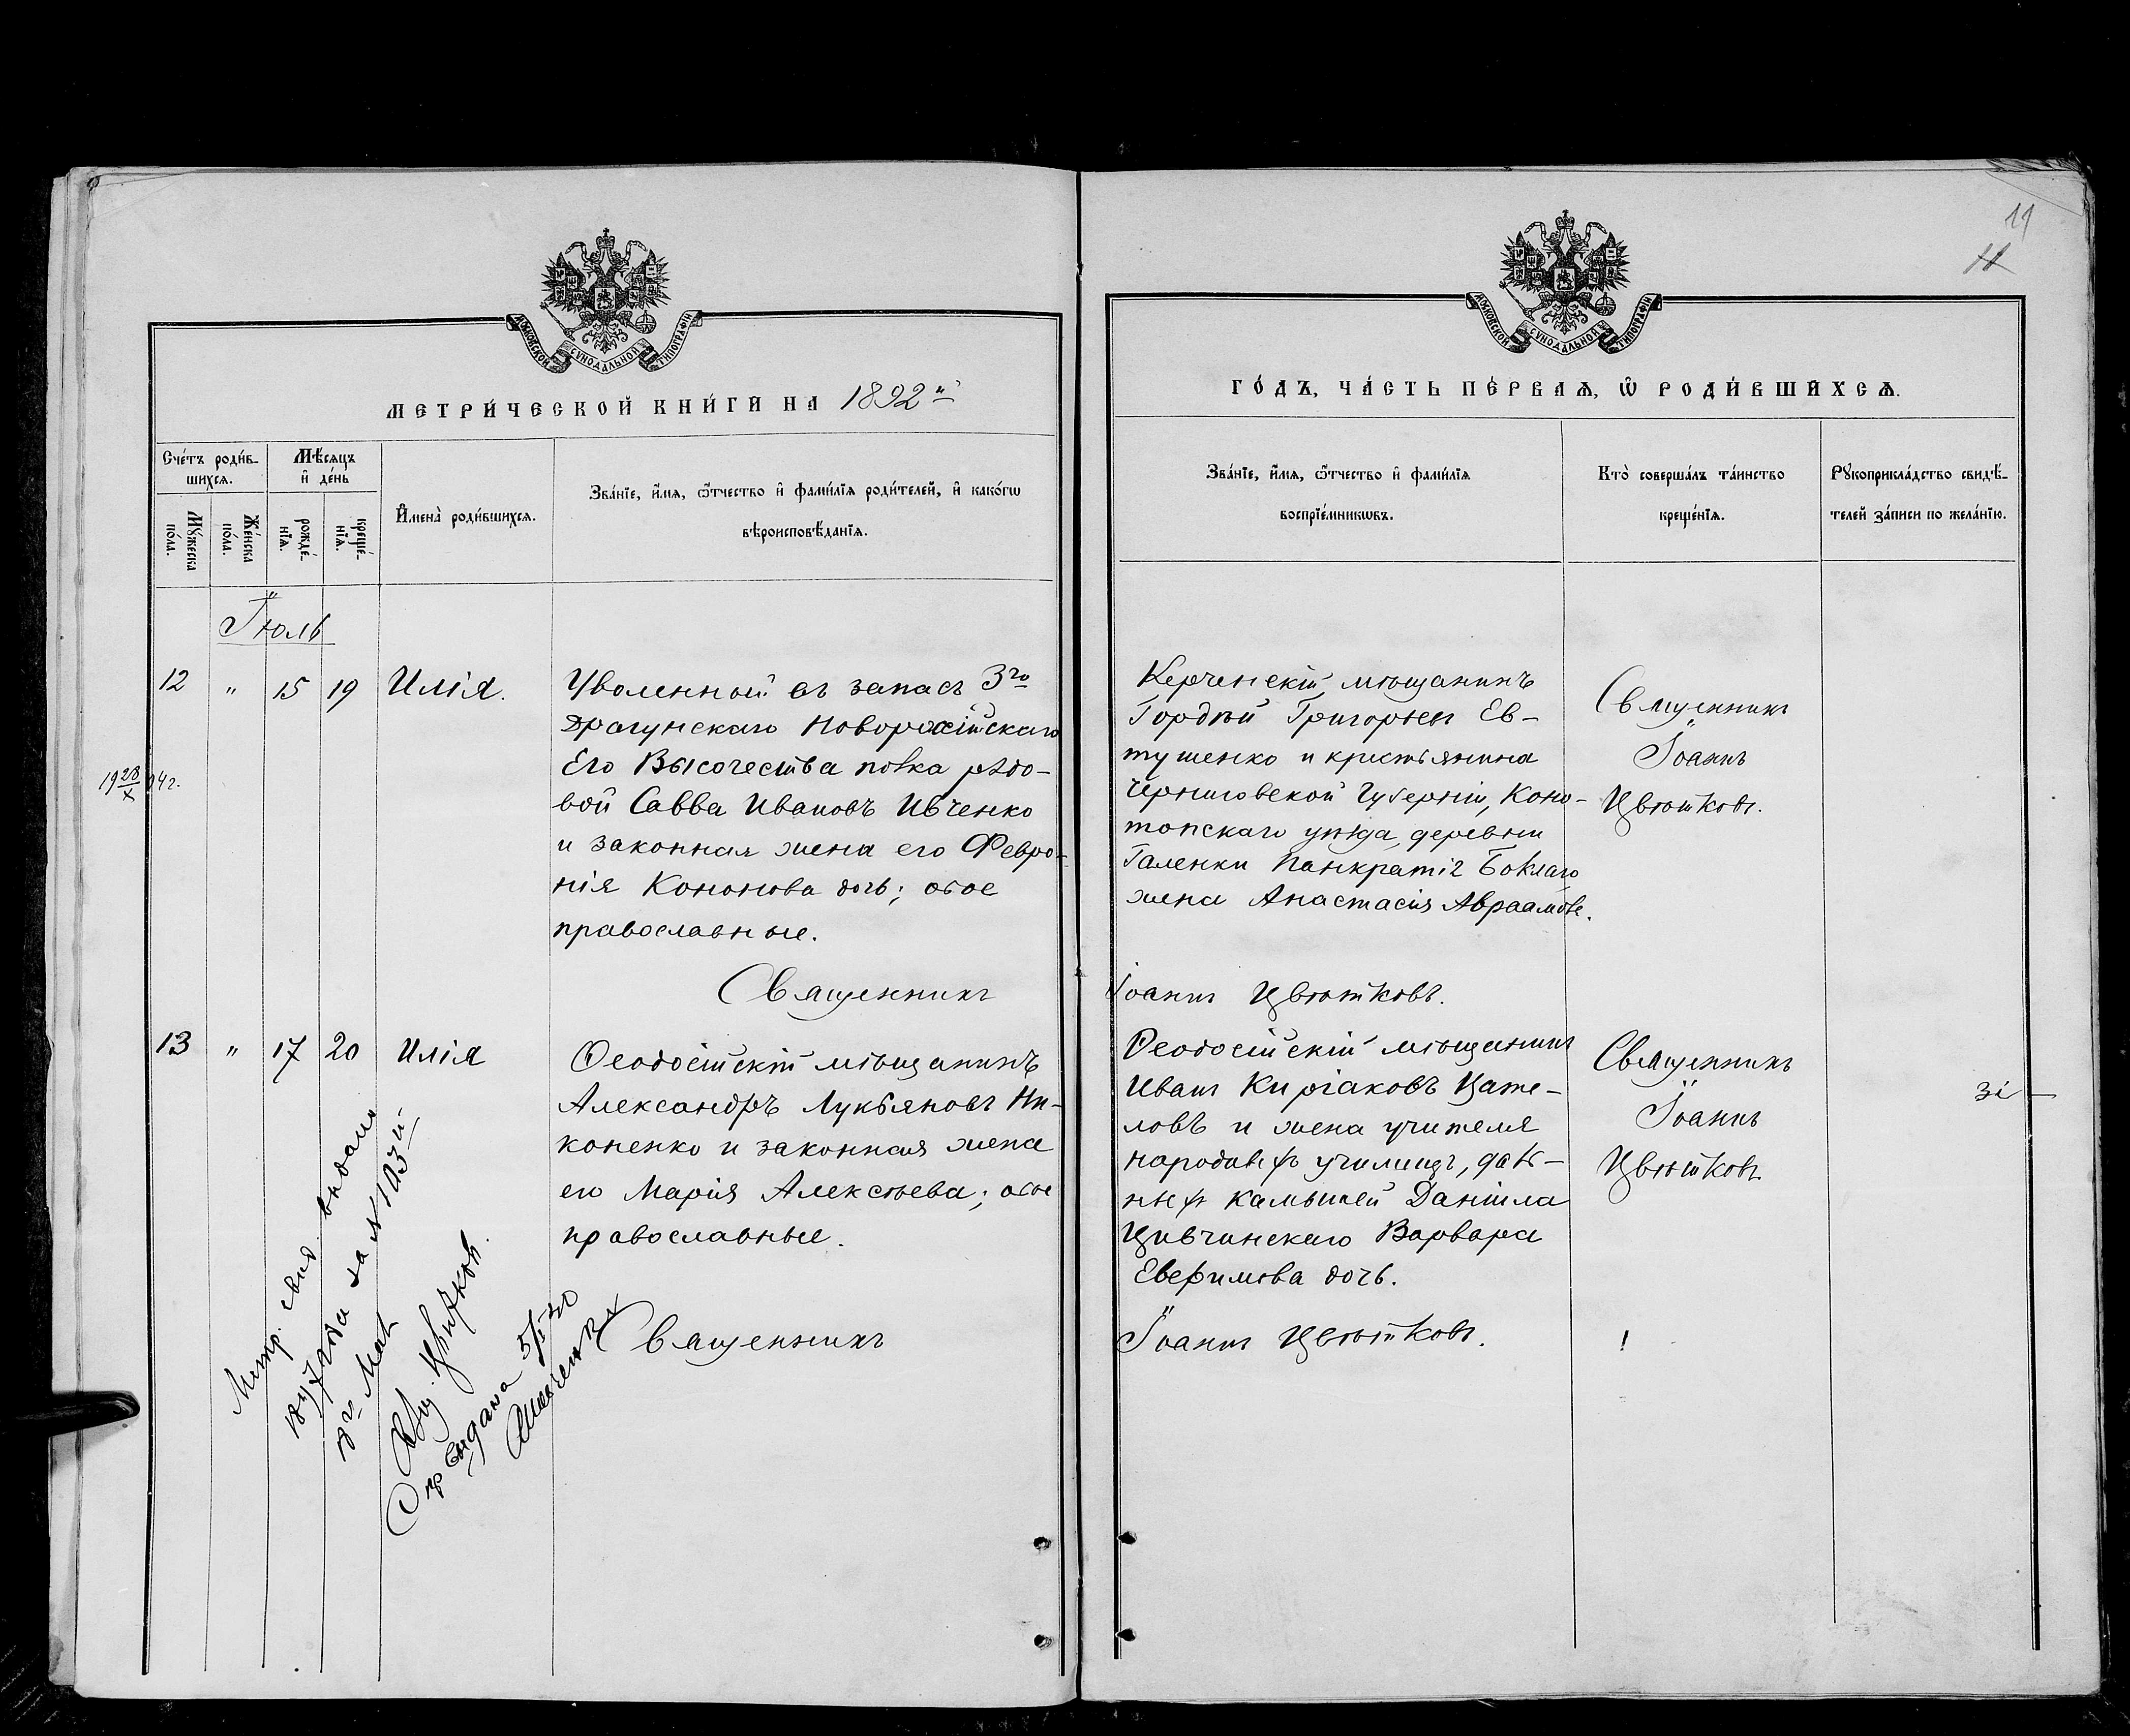 МОСКОВСКОЙ СУНОДАЛЬНОЙ ТИПОГРАФІИ
МЕТРИ́ЧЕСКОЙ КНИ́ГИ НА 1892й
Сче́тъ роди́в-
шихсѧ.
Мѣ́сѧцъ
и҆ де́нь
Мꙋ́жеска
по́ла.
Же́нска
по́ла.
рожде́-
нїѧ.
креще́-
нїѧ.
И҆мена̀ роди́вшихсѧ.
Зва́нїе, и҆́мѧ, ѻ҆́тчество и҆ фами́лїѧ роди́телей, и҆ како́гѡ
вѣроисповѣ́данїѧ.
Іюль
12 " 15 19 Илія.
Уволенной въ запасъ 3го
Драгунскаго Новороссійскаго
Его Высочества полка рядо-
вой Савва Ивановъ Ивченко
и законная жена его Февро-
нія Кононова дочь; обое
православные.
Священникъ
19 28/X 04г.
13 " 17 20 Илія
Ѳеодосійскій мѣщанинъ
Александръ Лукьяновъ Ни-
коненко и законная жена
его Марія Алексѣева; обое
православные.
Священникъ
Метр. свид. выдано
1897 года за №103й
Мая
Свящ. Цвѣтковъ.
выдана 5/I 20
11
11
ГО́ДЪ, ЧА́СТЬ ПЕ́РВАѦ, Ѡ҆ РОДИ́ВШИХСѦ.
Зва́нїе, и҆́мѧ, ѻ҆́тчество и҆ фами́лїѧ
воспрїе́мникѡвъ.
Кто̀ соверша́лъ та́инство
креще́нїѧ.
Рꙋкоприкла́дство свидѣ́-
телей за́писи по жела́нїю.
Керченскій мѣщанинъ
Гордѣй Григорьевъ Ев-
тушенко и крестьянина
Черниговской Губерніи, Коно-
топскаго уѣзда, деревни
Галенки Панкратія Боклаго
жена Анастасія Авраамова.
Священникъ
Іоаннъ
Цвѣтковъ.
Іоаннъ Цвѣтковъ.
Ѳеодосійскій мѣщанинъ
Иванъ Киріаковъ Цате-
ловъ и жена учителя
народныхъ училищъ, даль-
ныхъ камышей Даніила
Цивчинскаго Варвара
Евфимова дочь.
Священникъ
Іоаннъ
Цвѣтковъ
Іоаннъ Цвѣтковъ.